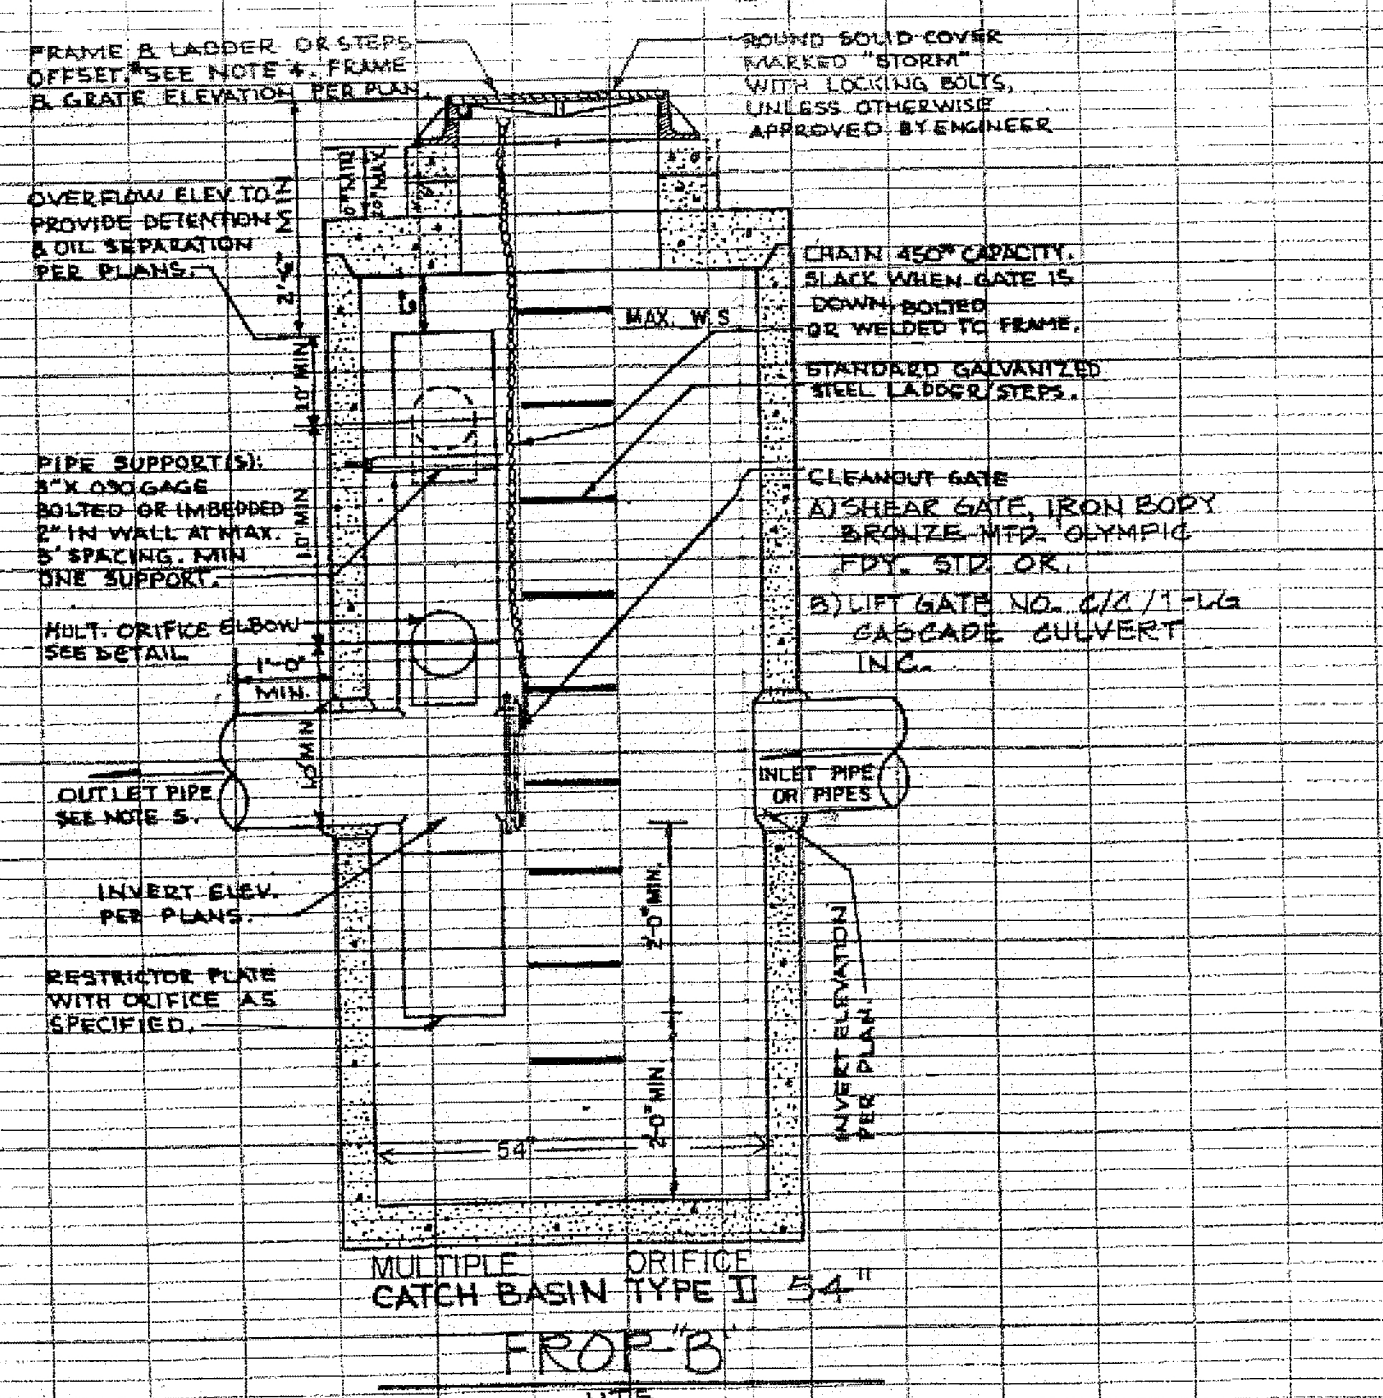 FRAME & LADDER OR STEPS
OFFSET. *SEE NOTE 4. FRAME
& GRATE ELEVATION PER PLAN.
ROUND SOLID COVER
MARKED "STORM"
WITH LOCKING BOLTS,
UNLESS OTHERWISE
APPROVED BY ENGINEER
MIN
20" MAX
OVERFLOW ELEV. TO
PROVIDE DETENTION
& OIL SEPARATION
PER PLANS.
MIN
6"
MAX. W.S
CHAIN 450# CAPACITY.
SLACK WHEN GATE IS
DOWN, BOLTED
OR WELDED TO FRAME.
STANDARD GALVANIZED
STEEL LADDER/STEPS.
1.0' MIN
PIPE SUPPORT(S):
3" X .090 GAGE
BOLTED OR IMBEDDED
2" IN WALL AT MAX.
3' SPACING. MIN
ONE SUPPORT.
1.0' MIN
CLEANOUT GATE
A) SHEAR GATE, IRON BODY
BRONZE MTD. OLYMPIC
FDY. STD. OR,
B) LIFT GATE NO. C/C/1-LG
CASCADE CULVERT
INC.
MULT. ORIFICE ELBOW
SEE DETAIL
1'-0"
MIN.
1.0' MIN
OUTLET PIPE
SEE NOTE 5.
INLET PIPE
OR PIPES
INVERT ELEV.
PER PLANS.
2'-0" MIN.
INVERT ELEVATION
PER PLAN.
RESTRICTOR PLATE
WITH ORIFICE AS
SPECIFIED.
2'-0" MIN
54"
MULTIPLE ORIFICE
CATCH BASIN TYPE II 54"
FROP-"B"